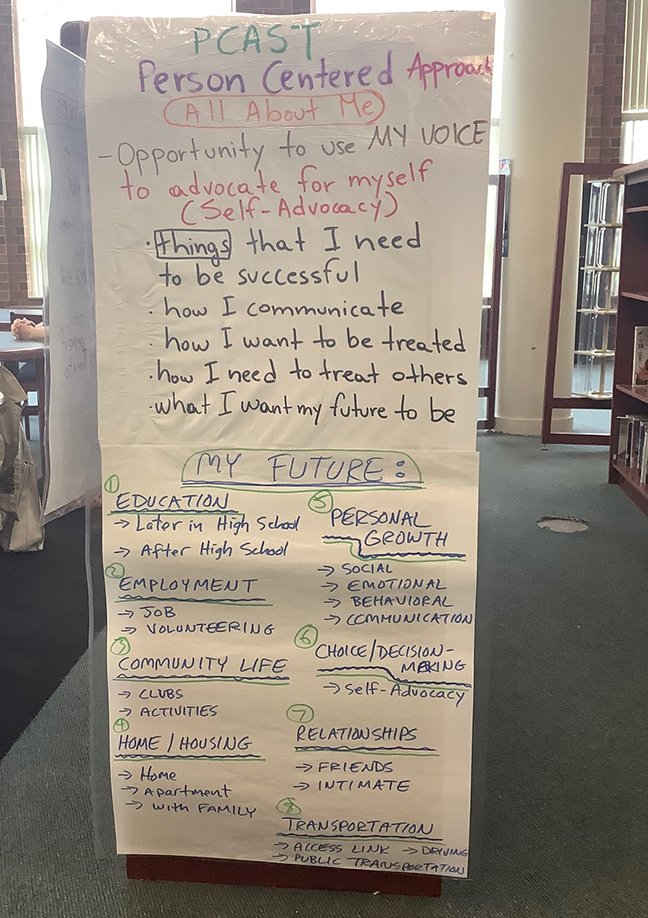 PCAST
Person Centered Approach
All About Me
- Opportunity to use MY VOICE
to advocate for myself
(Self-Advocacy)
· things that I need
to be successful
· how I communicate
· how I want to be treated
· how I need to treat others
· what I want my future to be
MY FUTURE:
1 EDUCATION
→ Later in High School
→ After High School
2 EMPLOYMENT
→ JOB
→ VOLUNTEERING
3 COMMUNITY LIFE
→ CLUBS
→ ACTIVITIES
4 HOME / HOUSING
→ Home
→ Apartment
→ with FAMILY
5 PERSONAL
GROWTH
→ SOCIAL
→ EMOTIONAL
→ BEHAVIORAL
→ COMMUNICATION
6 CHOICE/DECISION-
MAKING
→ Self-Advocacy
7 RELATIONSHIPS
→ FRIENDS
→ INTIMATE
8 TRANSPORTATION
→ ACCESS LINK → DRIVING
→ PUBLIC TRANSPORTATION